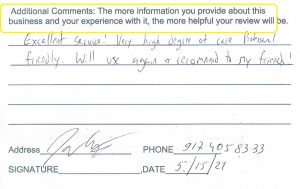 Additional Comments: The more information you provide about this
business and your experience with it, the more helpful your review will be.
Excellent service! Very high degree of care Professional
friendly. Will use again & recommend to my friends!
Address
PHONE 917 405 8333
SIGNATURE ,DATE 5/15/21